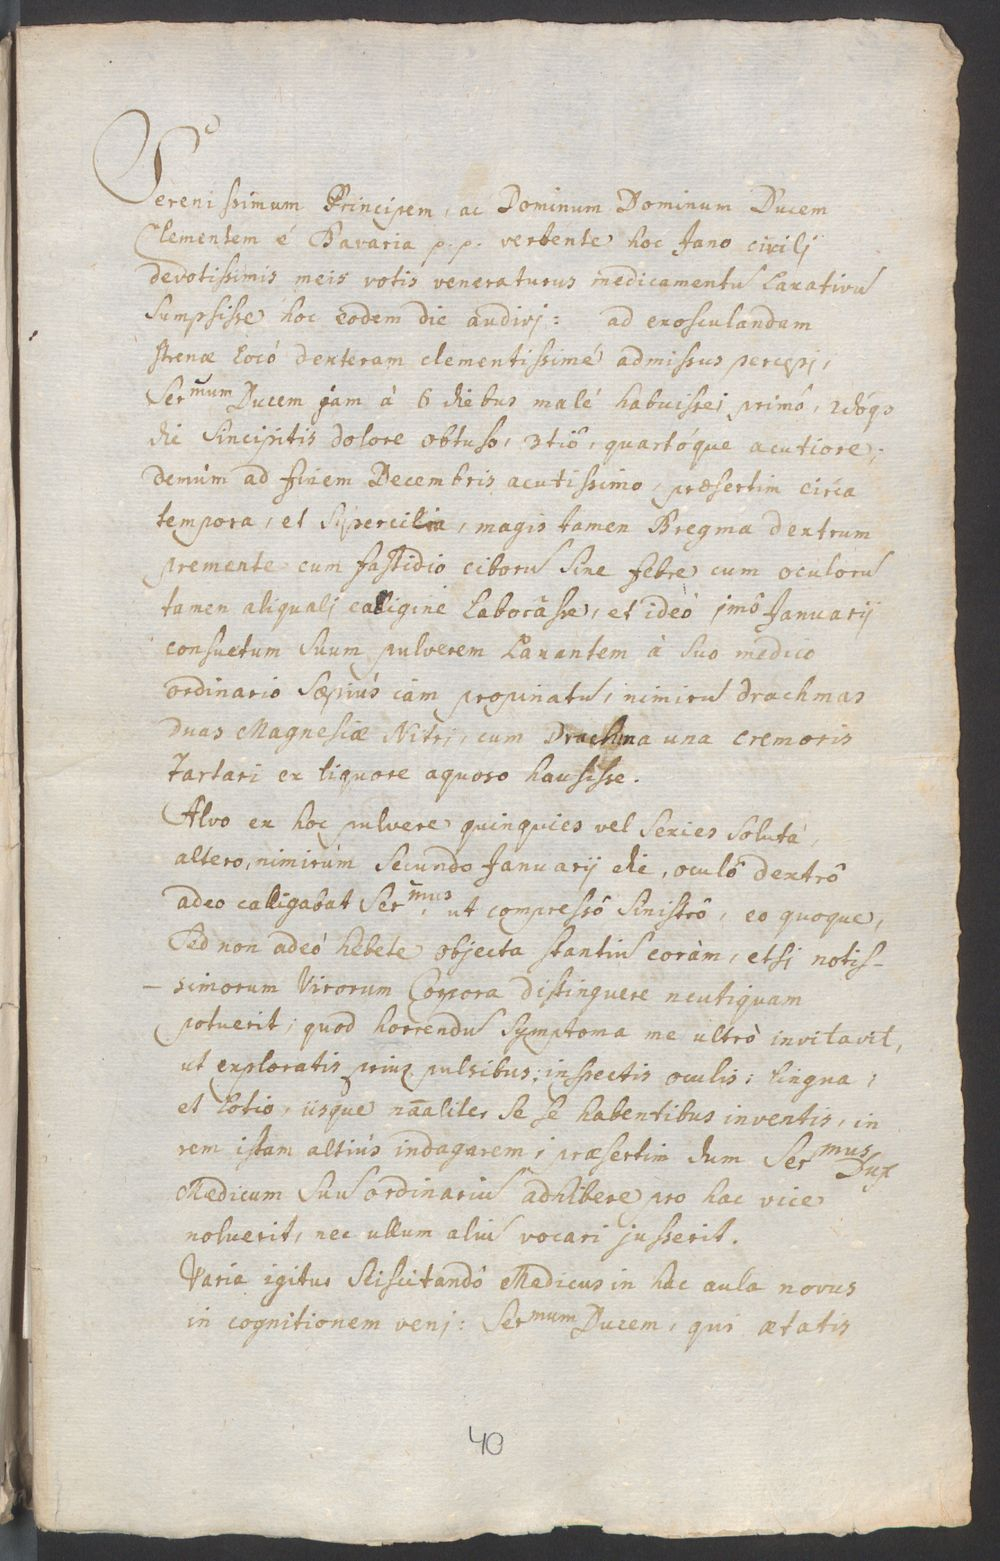 Serenissimum Principem, ac Dominum Dominum Ducem
Clementem é Bavaria p. p. vertente hoc Jano civilj
devotissimis meis votis veneraturus medicamentū Laxativū
Sumpsisse hoc eodem die audivj: ad exosculandam
strenæ locó dexteram clementissimé admissus percepj,
Ser mũm Ducem jam à 6 diebus malé habuisse; primó, 2dóqs
die Sincipitis dolore obtuso, 3tiô, quartóque acutiore;
demùm ad finem Decembris acutissimo, præsertim circa
tempora, et Supercilia, magis tamen Bregma dextrum
premente cum fastidio ciborū Sine febre cum oculorū
tamen aliqualj caligine Laborâsse, et ideò jmô Januarij
consuetum Suum pulverem Laxantem à Suo medico
ordinario Sæpiùs iam propinatū, nimirū drachmas
duas Magnesiæ Nitrj, cum Drachma una cremoris
Tartari ex liquore aquoso hausisse.
Alvo ex hoc pulvere quinquies vel Sexies Soluta,
altero, nimirùm Secundo Januarij die, oculô dextrô
adeo caligabat Ser m̃us, ut compressô Sinistrô, eo quoque,
Sed non adeó hebete objecta stantiū coràm, etsi notis-
-simorum Virorum Corpora distinguere neutiquam
potuerit; quod horrendū Symptoma me ultrò invitavit,
ut exploratis priuq pulsibus; inspectis oculis; lingua,
et Lotio, iisque nãaliter Se Se habentibus inventis, in
rem istam altiùs indagarem; præsertim dum Ser mus Dux
Medicum Suū ordinariū adhibere pro hac vice
noluerit, nec ullum aliū vocari jusserit.
Varia igitur Sciscitandó Medicus in hac aula novus
in cognitionem venj: Ser mum Ducem, qui ætatis
40